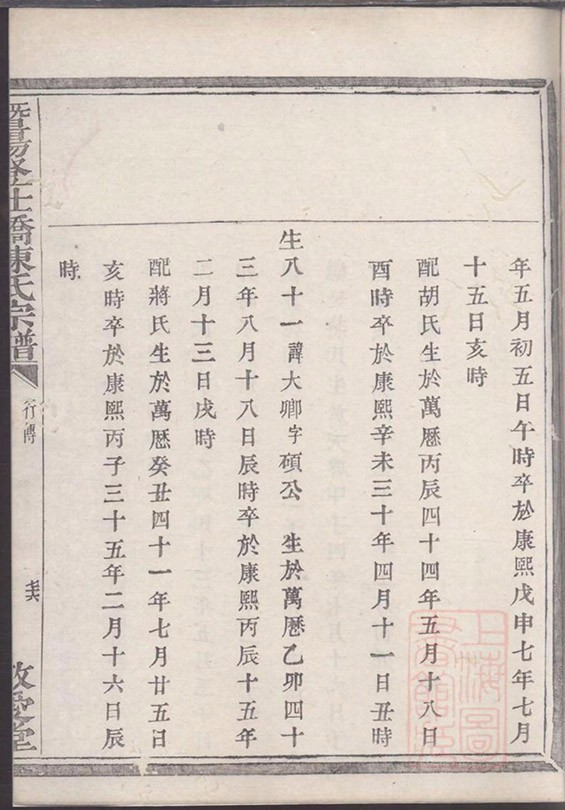 年五月初五日午時卒於康熙戊申七年七月
十五日亥時
配胡氏生於萬歷丙辰四十四年五月十八日
酉時卒於康熙辛未三十年四月十一日丑時
生八十一諱大卿字碩公生於萬歷乙卯四十
三年八月十八日辰時卒於康熙丙辰十五年
二月十三日戌時
配蔣氏生於萬歷癸丑四十一年七月廿五日
亥時卒於康熙丙子三十五年二月十六日辰
時
暨陽 橋陳氏宗譜
行傳
敬愛堂
上海圖書館藏